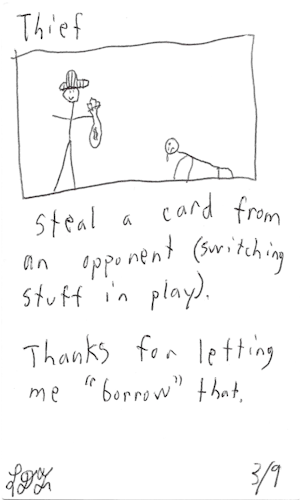 Thief
Steal a card from
an opponent (switching
stuff in play).
Thanks for letting
me "borrow" that.
3/9